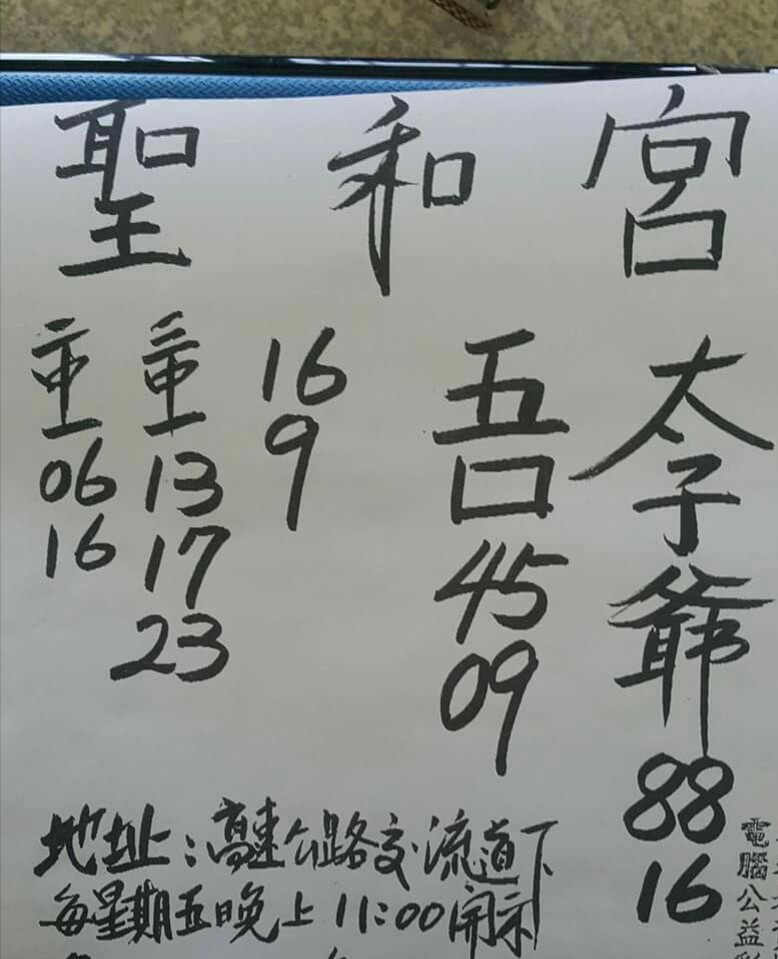 聖和宮
太子爺
88
16
吾
45
09
16
9
13
17
23
06
16
地址:高速公路交流道下
每星期五晚上11:00開示
電腦公益彩